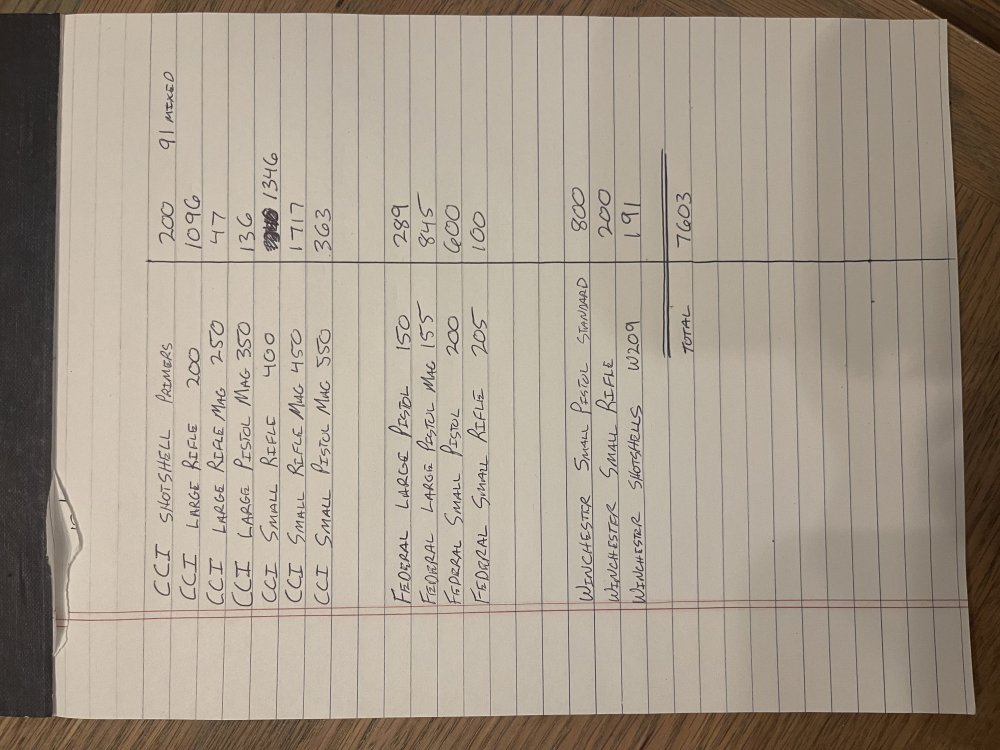 CCI SHOTSHELL PRIMERS 200 91 MIXED
CCI LARGE RIFLE 200 1096
CCI LARGE RIFLE MAG 250 47
CCI LARGE PISTOL MAG 350 136
CCI SMALL RIFLE 400 1346
CCI SMALL RIFLE MAG 450 1717
CCI SMALL PISTOL MAG 550 363
FEDERAL LARGE PISTOL 150 289
FEDERAL LARGE PISTOL MAG 155 845
FEDERAL SMALL PISTOL 200 600
FEDERAL SMALL RIFLE 205 100
WINCHESTER SMALL PISTOL STANDARD 800
WINCHESTER SMALL RIFLE 200
WINCHESTER SHOTSHELLS W209 191
TOTAL 7603